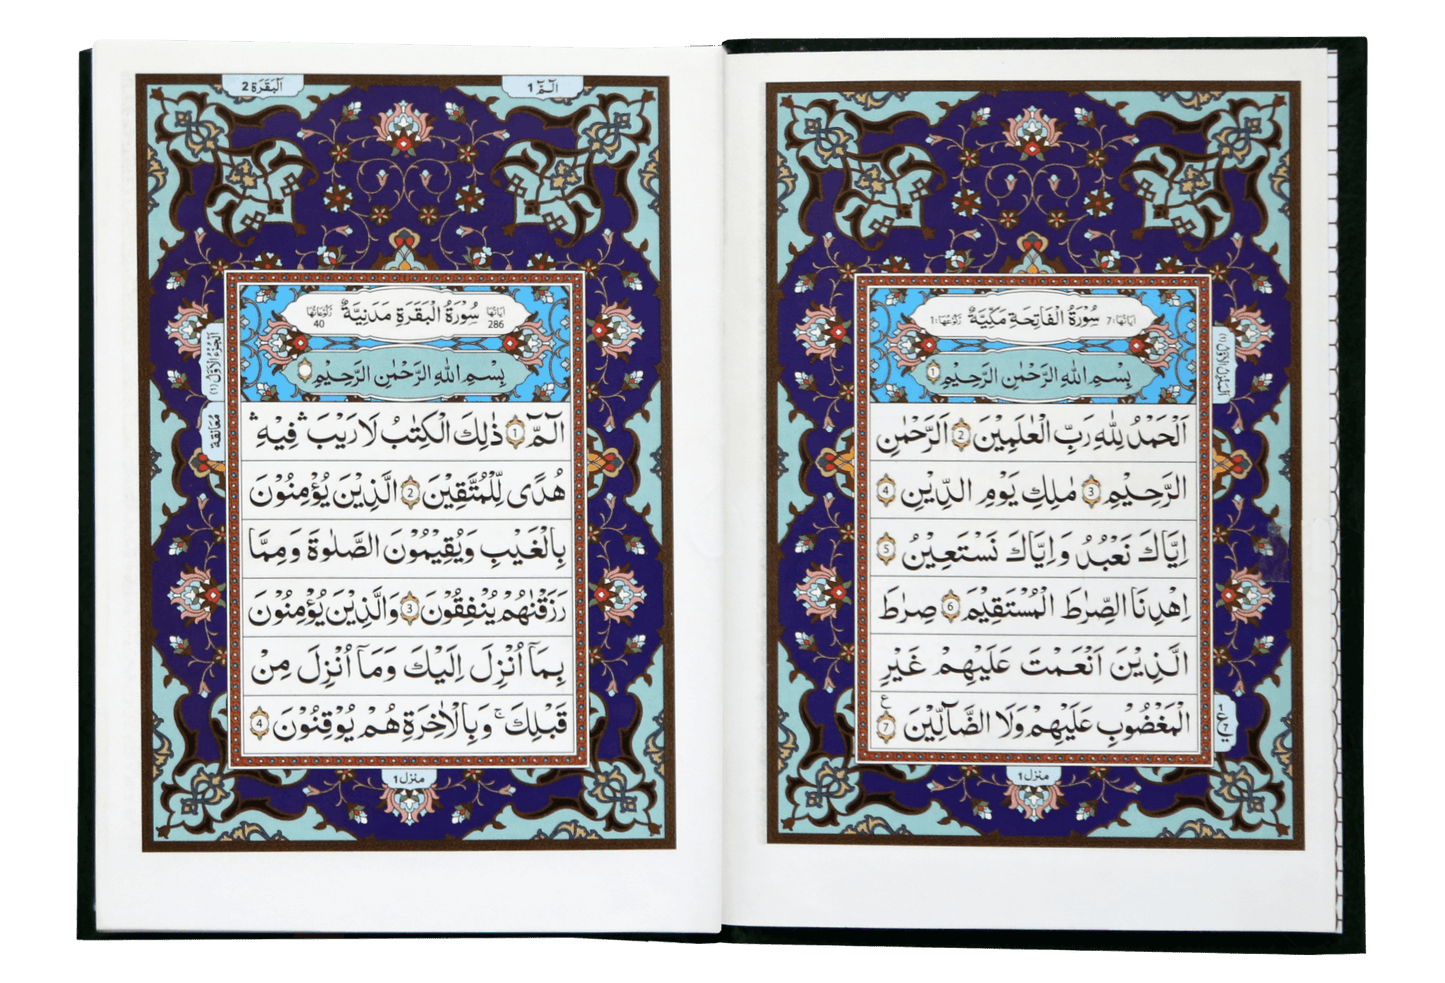 سُوْرَةُ الْفَاتِحَةِ مَكِّيَّةٌ
اٰيَاتُهَا: 7
رُكُوْعُهَا: 1
بِسْمِ اللهِ الرَّحْمٰنِ الرَّحِيْمِ 1
اَلْحَمْدُ لِلّٰهِ رَبِّ الْعٰلَمِيْنَ 2 اَلرَّحْمٰنِ
الرَّحِيْمِ 3 مٰلِكِ يَوْمِ الدِّيْنِ 4
اِيَّاكَ نَعْبُدُ وَاِيَّاكَ نَسْتَعِيْنُ 5
اِهْدِنَا الصِّرَاطَ الْمُسْتَقِيْمَ 6 صِرَاطَ
الَّذِيْنَ اَنْعَمْتَ عَلَيْهِمْ غَيْرِ
الْمَغْضُوْبِ عَلَيْهِمْ وَلَا الضَّآلِّيْنَ 7
ع
اَلْمَنْزِلُ الْاَوَّلُ (1)
1
ع
7
منزل 1
الٓمّٓ 1
اَلْبَقَرَة 2
سُوْرَةُ الْبَقَرَةِ مَدَنِيَّةٌ
اٰيَاتُهَا 286
رُكُوْعَاتُهَا 40
بِسْمِ اللهِ الرَّحْمٰنِ الرَّحِيْمِ
الٓمّٓ 1 ذٰلِكَ الْكِتٰبُ لَا رَيْبَ ۛ فِيْهِ ۛ
هُدًى لِّلْمُتَّقِيْنَ 2 الَّذِيْنَ يُؤْمِنُوْنَ
بِالْغَيْبِ وَيُقِيْمُوْنَ الصَّلٰوةَ وَمِمَّا
رَزَقْنٰهُمْ يُنْفِقُوْنَ 3 وَالَّذِيْنَ يُؤْمِنُوْنَ
بِمَآ اُنْزِلَ اِلَيْكَ وَمَآ اُنْزِلَ مِنْ
قَبْلِكَ ۚ وَبِالْاٰخِرَةِ هُمْ يُوْقِنُوْنَ 4
اَلْجُزْءُ الْاَوَّلُ (1)
مُعَانَقَة
منزل 1